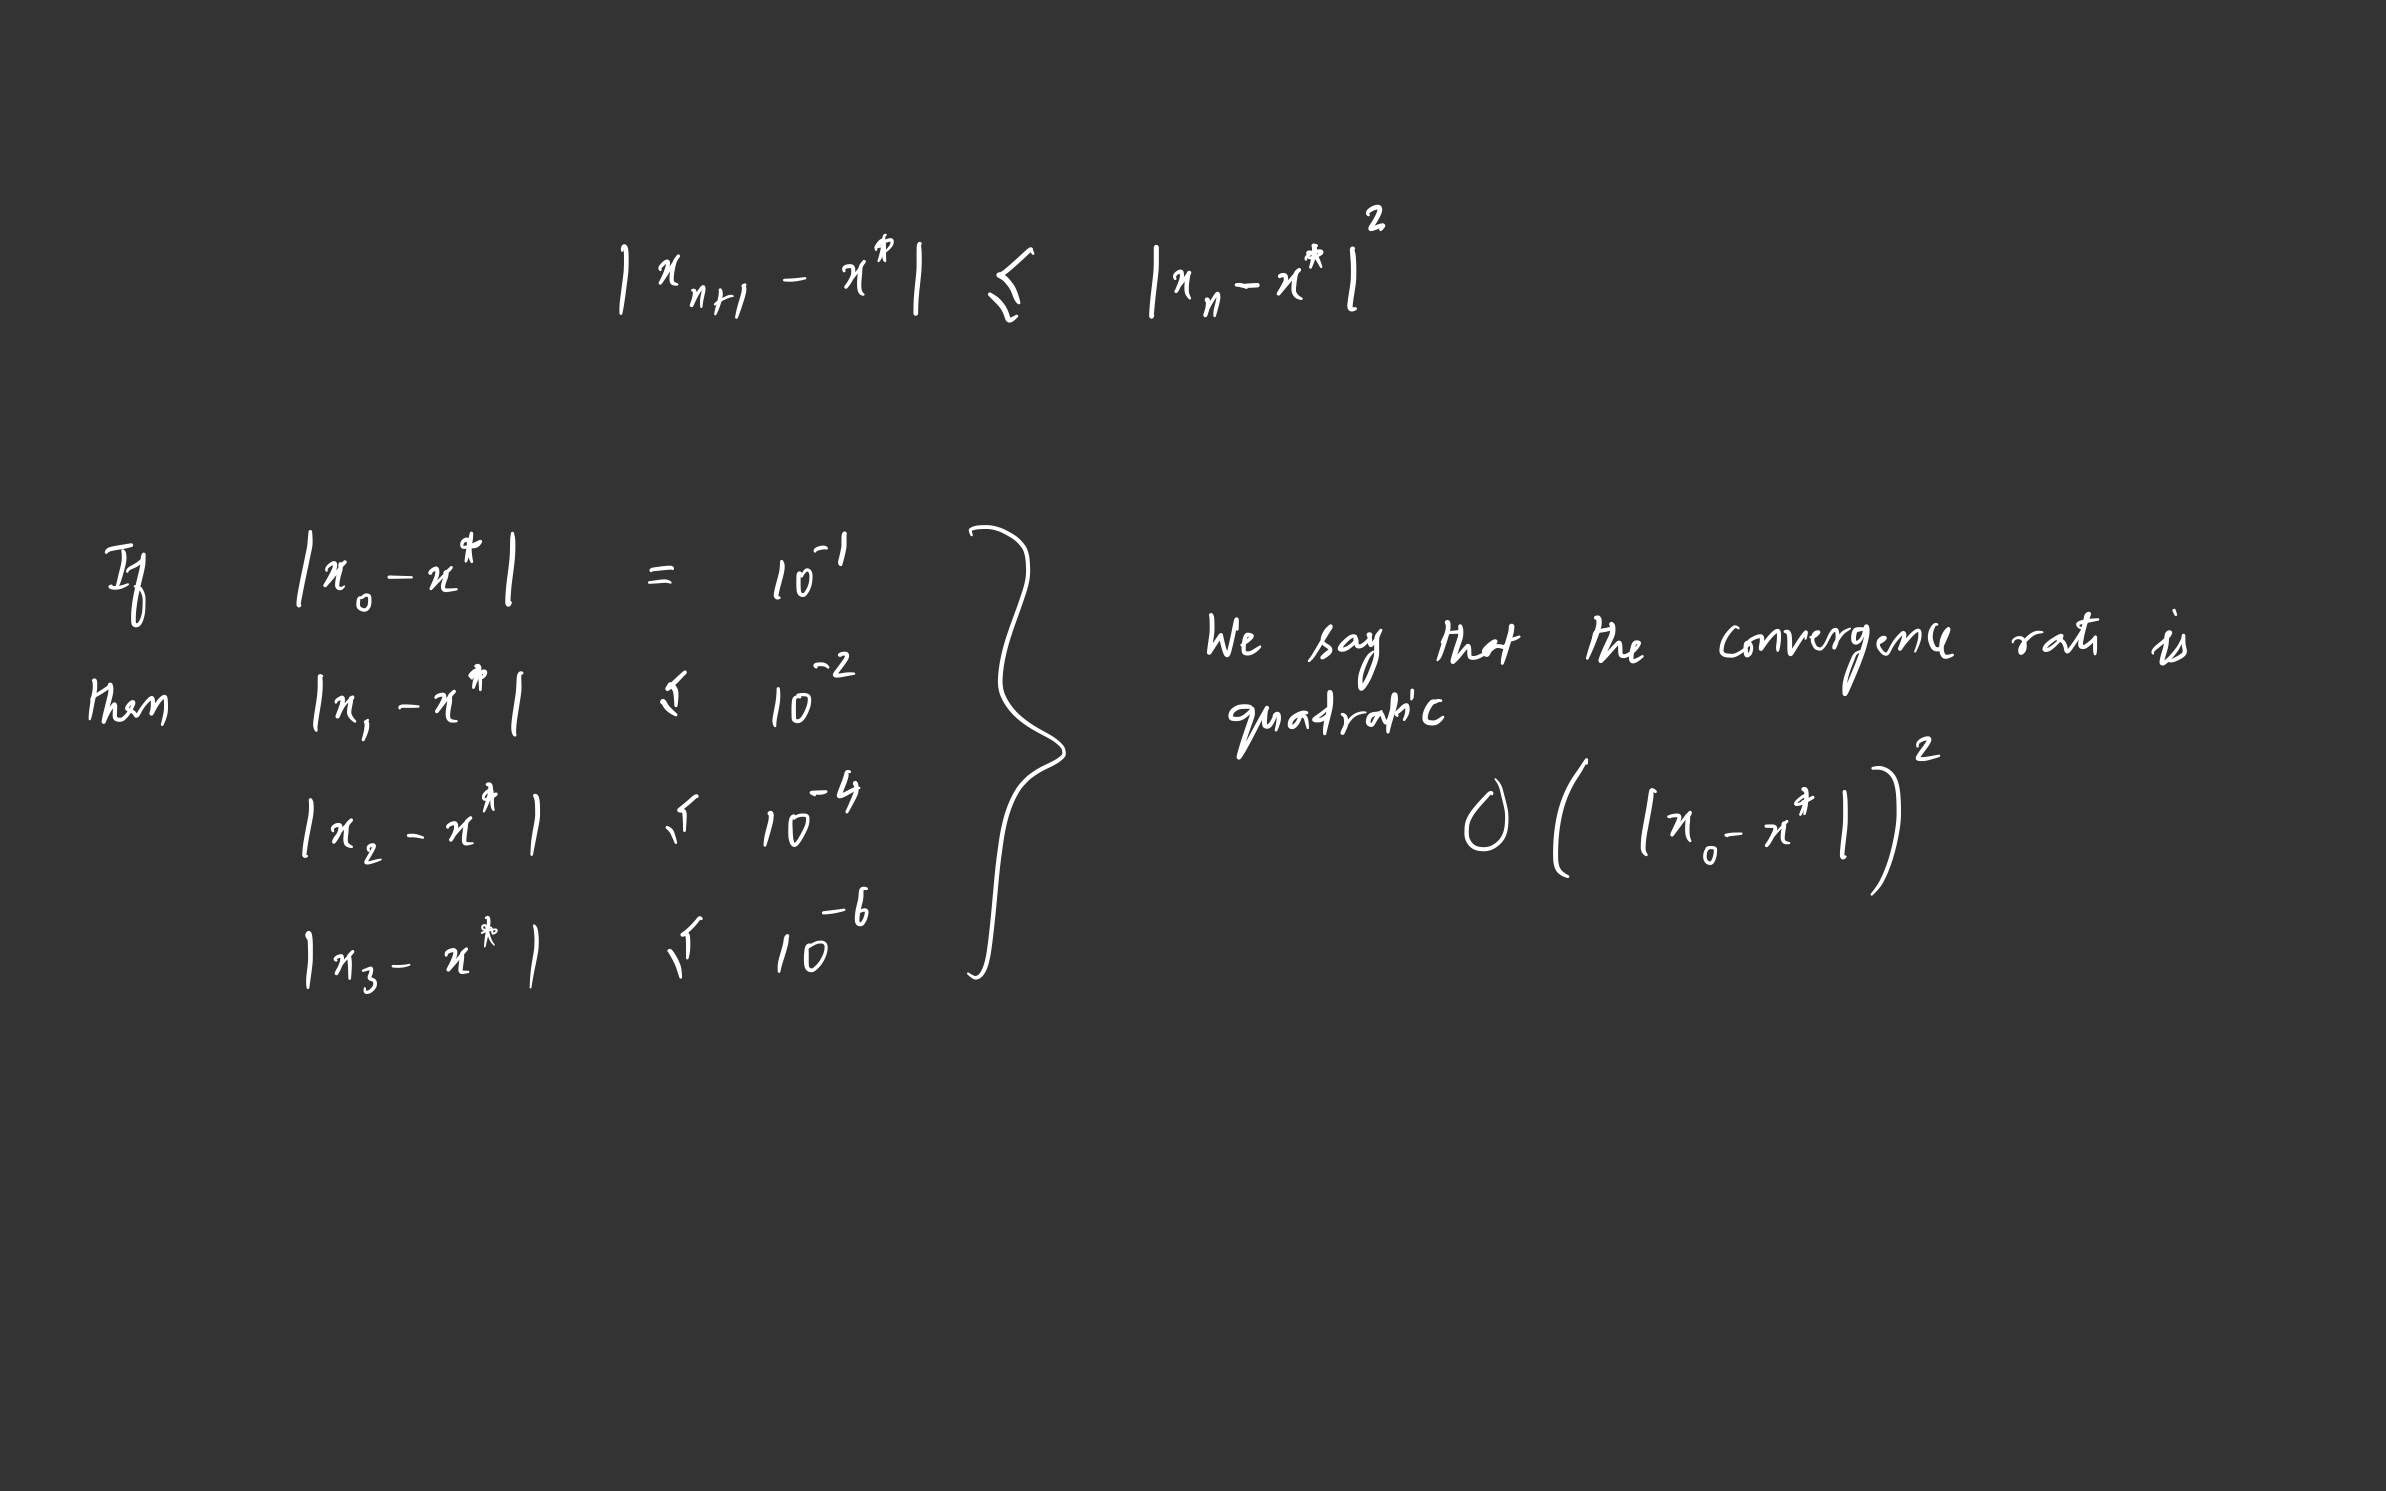 |x_{n+1} - x^*| ≤ |x_n - x^*|^2
If |x_0 - x^*| = 10^{-1}
then |x_1 - x^*| ≤ 10^{-2}
|x_2 - x^*| ≤ 10^{-4}
|x_3 - x^*| ≤ 10^{-6}
We say that the convergence rate is
quadratic
O(|x_0 - x^*|)^2